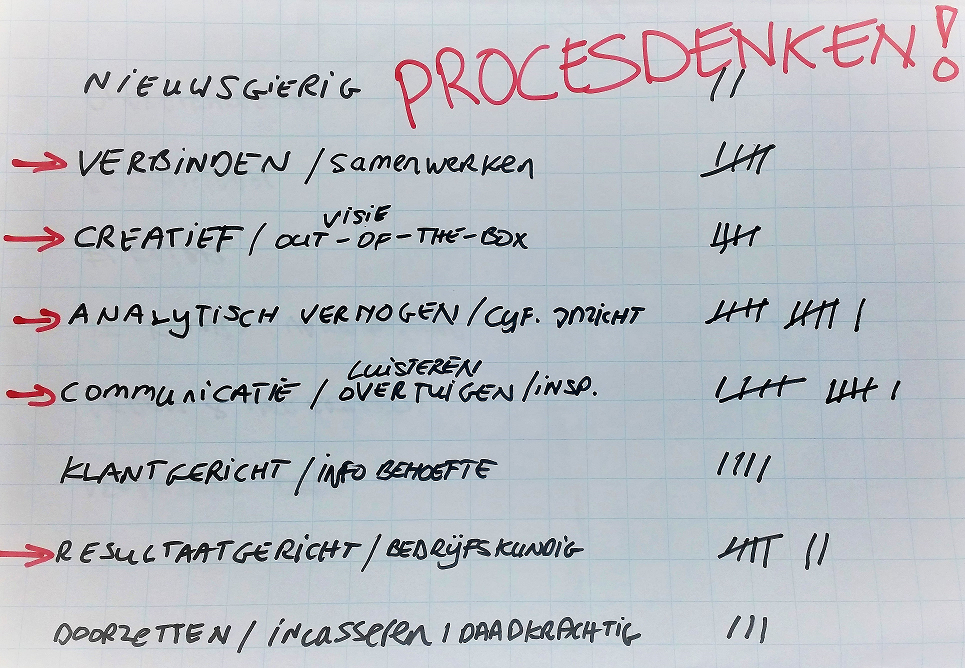 PROCESDENKEN!
NIEUWSGIERIG
VERBINDEN / samenwerken
VISIE
CREATIEF / OUT-OF-THE-BOX
ANALYTISCH VERMOGEN / CYF. INZICHT
LUISTEREN
COMMUNICATIE / OVERTUIGEN / INSP.
KLANTGERICHT / INFO BEHOEFTE
RESULTAATGERICHT / BEDRIJFSKUNDIG
DOORZETTEN / incasseren / DAADKRACHTIG